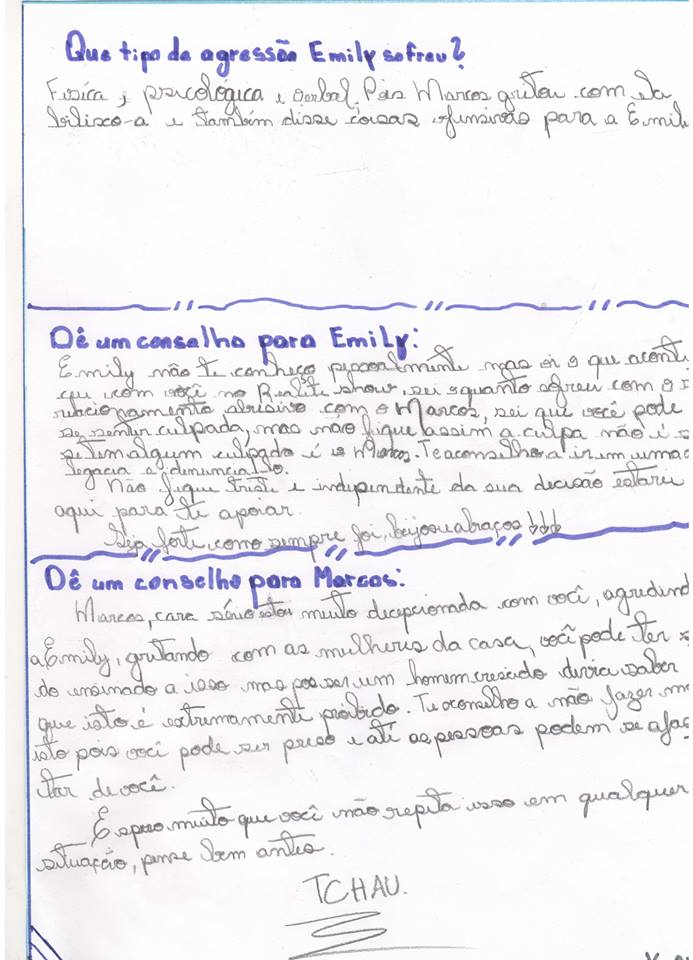 Que tipo de agressão Emily sofreu?
Física, psicológica e verbal, Pois Marcos gritou com ela
bilisco-a e também disse coisas ofensivas para a Emil
Dê um conselho para Emily:
Emily não te conheço pessoalmente mas vi o que aconte
ceu com você no Reality show, sei o quanto sofreu com o
relacionamento abusivo com o Marcos, sei que você pode
se sentir culpada, mas não fique assim a culpa não é s
se tem algum culpado é o Marcos. Te aconselho a ir em uma d
legacia e denuncia-lo.
Não fique triste e independente da sua decisão estarei
aqui para te apoiar.
Seja forte como sempre foi, beijos e abraços
Dê um conselho para Marcos:
Marcos, cara sério estou muito decepcionada com você, agredind
a Emily, gritando com as mulheres da casa, você pode ter s
do ensinado a isso mas pos ser um homem crescido devia saber
que isto é extremamente proibido. Te aconselho a não fazer ma
isto pois você pode ser preso e até as pessoas podem se afas
tar de você.
Espero muito que você não repita isso em qualquer
situação, pense bem antes.
TCHAU.